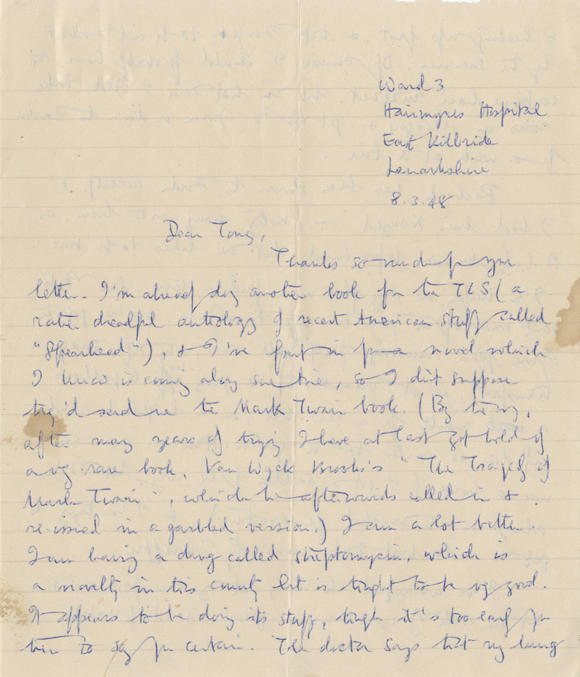 Ward 3
Hairmyres Hospital
East Kilbride
Lanarkshire
8.3.48
Dear Tony,
Thanks so much for your
letter. I'm already doing another book for the TLS (a
rather dreadful anthology of recent American stuff called
"Spearhead"), & I've put in for a novel which
I know is coming along some time, so I don't suppose
they'd send me the Mark Twain book. (By the way,
after many years of trying I have at last got hold of
a v. rare book, Van Wyck Brooks's "The Tragedy of
Mark Twain", which he afterwards called in &
re-issued in a garbled version.) I am a lot better.
I am having a drug called streptomycin, which is
a novelty in this country but is thought to be v. good.
It appears to be doing its stuff, though it's too early for
them to say for certain. The doctor says that my lung